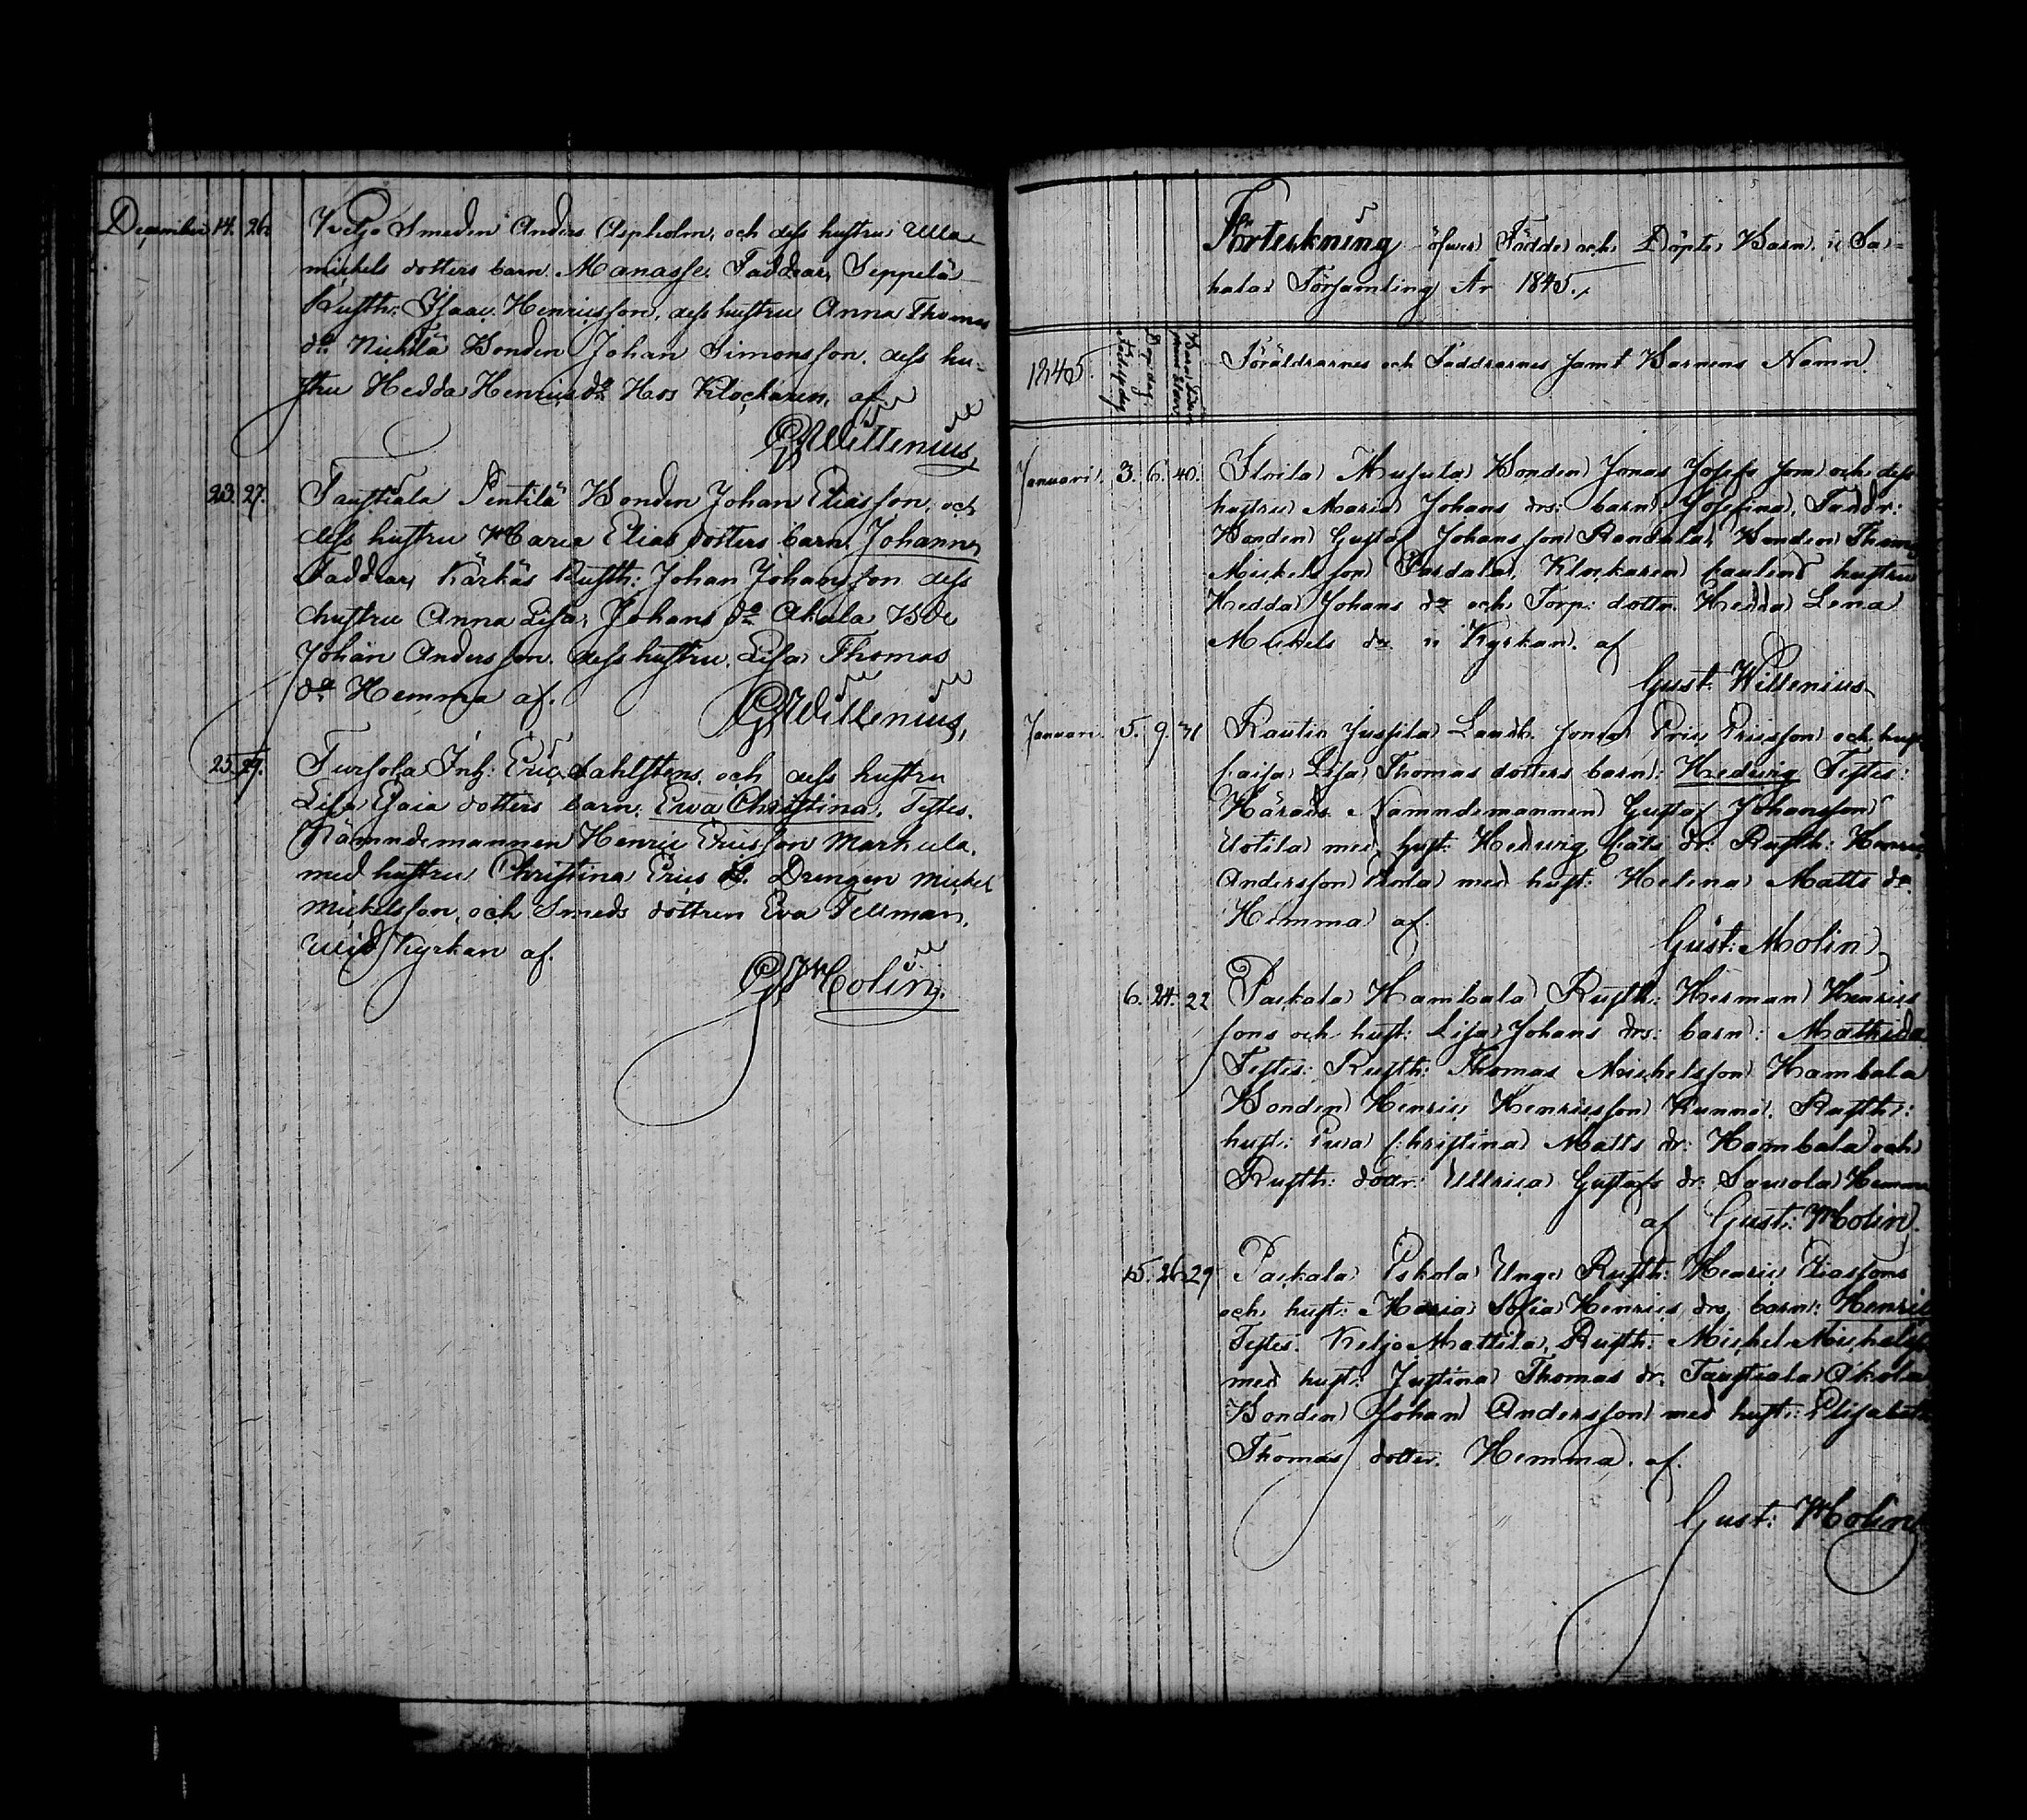 December 14. 26. Keljo Smeden Anders Aspholm, och dess hustru Ulla
mickels dotters barn. Manasse. Faddrar, Seppelä
Rusth: Isaac Henricsson, dess hustru Anna Thomas
dr. Bonden Johan Simonsson. dess hu-
stru Hedda Henrics dr Hos Klockaren, af
G. Willenius,
23. 27. Taustiala Pentilä Bonden Johan Eliasson, och
dess hustru Maria Elias dotters barn. Johannes
Faddrar, Kärkäs Rusth: Johan Johansson dess
hustru Anna Lisa, Johans dr Akala Bde
Johan Andersson. dess hustru, Lisa Thomas
dr Hemma af.
G. Willenius,
25. 29. Tursola Inh: Eric Dahlstens, och dess hustru
Lisa Esaia dotters barn: Ewa Christina. Testes.
Nämndemannen Henric Ericsson Markula,
med hustru Christina Erics d. Drengen Mickel
Mickelsson, och Smeds dottren Eva Tellman,
wid Kyrkan af.
G. Molin.
Förteckning öfwer Födde och Döpte Barn i Sa-
halax Församling År 1845.
1845. Födelsedag Döpedag Föräldrarnes och Faddrarnes samt Barnens Namn.
Januari. 3. 6. 40. Bonden Jonas Josefs son och dess
hustru Maria Johans drs: barn: Josefina, Faddr:
Bonden Gustaf Johansson Bonden Thomas
Mickelsson Klockaren hustru
Hedda Johans dr och Torp: dottr. Hedda Lena
Mickels dr. i Kyrkan. af
Gust: Willenius
Januari. 5. 9. 31 Rautio Jussila Landb. Eric Ericsson och hust
Lisa Thomas dotters barn: Hedwig Testes:
Härads Nämndemannen Gustaf Johansson
Uotila med hust: Hedwig dr. Rusth: Henric
Andersson med hust: Helena Matts dr.
Hemma af.
Gust: Molin,
6. 24. 22 Paskala Hambala Rusth: Herman Henrics
sons och hust: Lisa Johans drs: barn: Mathilda
Testes: Rusth: Thomas Mickelsson Hambala
Bonden Henric Henricsson Rusth:
hust: Ewa Christina Matts dr: Hambala och
Rusth: dottr: Ullrica Gustafs dr: Sawola Hemma
af Gust: Molin.
15. 26. 29 Paskala Eskola Unge Rusth: Henric Eliassons
och hust: Maria Sofia Henrics drs, barn: Henric
Testes. Keljo Mattila, Rusth: Mickel Mickelss
med hust: Justina Thomas dr. Taustiala Akola
Bonden Johan Andersson med hust: Elisabeth
Thomas dotter. Hemma. af.
Gust: Molin